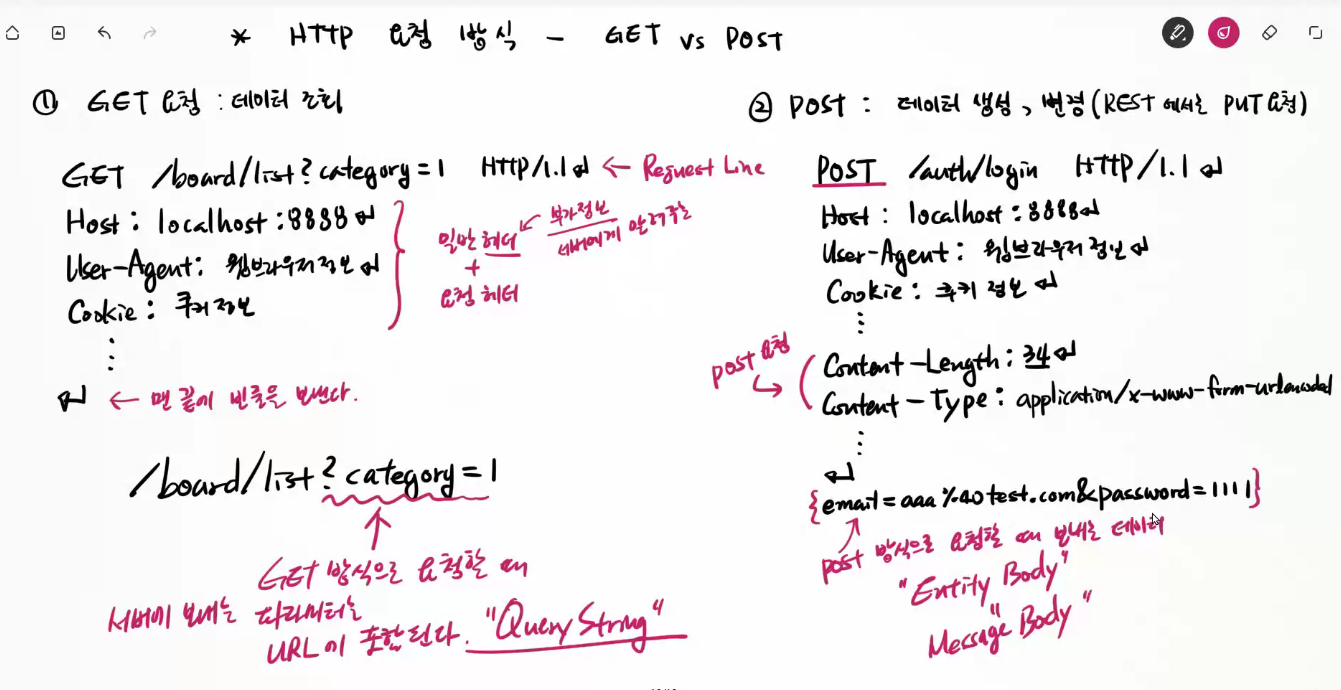 * HTTP 요청 방식 - GET vs POST
① GET 요청 : 데이터 조회
GET /board/list?category=1 HTTP/1.1↵ ← Request Line
Host: localhost:8888↵
User-Agent: 웹브라우저 정보↵
Cookie: 쿠키 정보
일반 헤더 ← 부가정보
서버에게 알려주는
+
요청 헤더
⋮
↵ ← 맨 끝에 빈줄을 보낸다.
/board/list?category=1
GET 방식으로 요청할 때
서버에 보내는 파라미터는
URL에 포함된다. "Query String"
② POST : 데이터 생성, 변경(REST에서는 PUT 요청)
POST /auth/login HTTP/1.1↵
Host: localhost:8888↵
User-Agent: 웹브라우저 정보↵
Cookie: 쿠키 정보↵
⋮
post 요청
Content-Length: 34↵
Content-Type: application/x-www-form-urlencoded
⋮
↵
{email=aaa%40test.com&password=1111}
post 방식으로 요청할 때 보내는 데이터
"Entity Body"
"
Message Body"